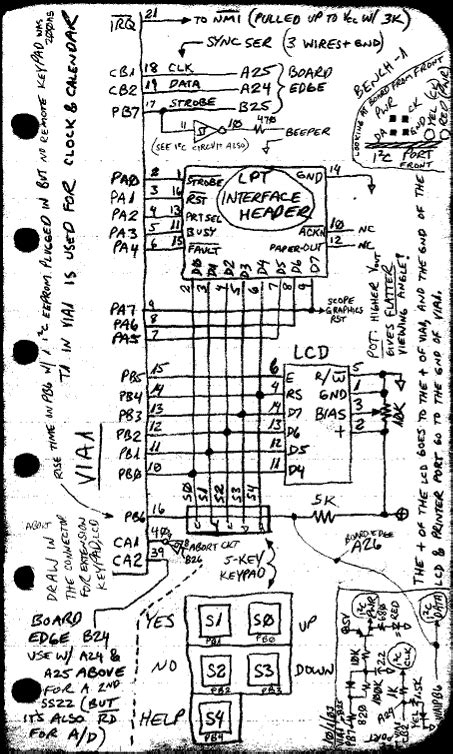 IRQ 21 → TO NMI (PULLED UP TO Vcc W/ 3K)
SYNC SER (3 WIRES + GND)
CB1 18 CLK A25
CB2 19 DATA A24
PB7 17 STROBE B25
BOARD EDGE
11 10 470 BEEPER
(SEE I²C CIRCUIT ALSO)
BENCH-1
LOOKING AT BOARD FROM FRONT
PWR CK
DA GND
I²C PORT
FRONT
PA0 2 1 STROBE
PA1 3 16 RST
PA2 4 13 PRT SEL
PA3 5 11 BUSY
PA4 6 15 FAULT
LPT INTERFACE HEADER
GND 14
ACKN 10 NC
PAPER-OUT 12 NC
D0 D1 D2 D3 D4 D5 D6 D7
2 3 4 5 6 7 8 9
PA7 9
PA6 8
PA5 7
SCOPE GRAPHICS RST
POT: HIGHER Vout GIVES FLATTER VIEWING ANGLE!
LCD
PB5 15 6 E
PB4 14 4 RS
PB3 13 14 D7
PB2 12 13 D6
PB1 11 12 D5
PB0 10 11 D4
R/W 5
GND 1
BIAS 3
+ 2
10K
S0 S1 S2 S3 S4
PB6 16
5K
CA1 40
CA2 39
ABORT CKT
B26
BOARD EDGE A26
5-KEY KEYPAD
YES S1 S0 UP
PB1 PB0
NO S2 S3 DOWN
PB2 PB3
HELP S4
PB4
BOARD
EDGE B24
USE W/ A24 &
A25 ABOVE
FOR A 2ND
SS22 (BUT
IT'S ALSO RD
FOR A/D)
VIA1
T1 IN VIA1 IS USED FOR CLOCK & CALENDAR
RISE TIME IN PB6 W/ 1 I²C EEPROM PLUGGED IN BUT NO REMOTE KEYPAD WAS 200nS
DRAW IN
THE CONNECTOR
FOR EXTENSION
KEYPAD/LCD
THE + OF THE LCD GOES TO THE + OF VIA1, AND THE GND OF THE
LCD & PRINTER PORT GO TO THE GND OF VIA1.
I²C PWR
I²C DATA
I²C CLK